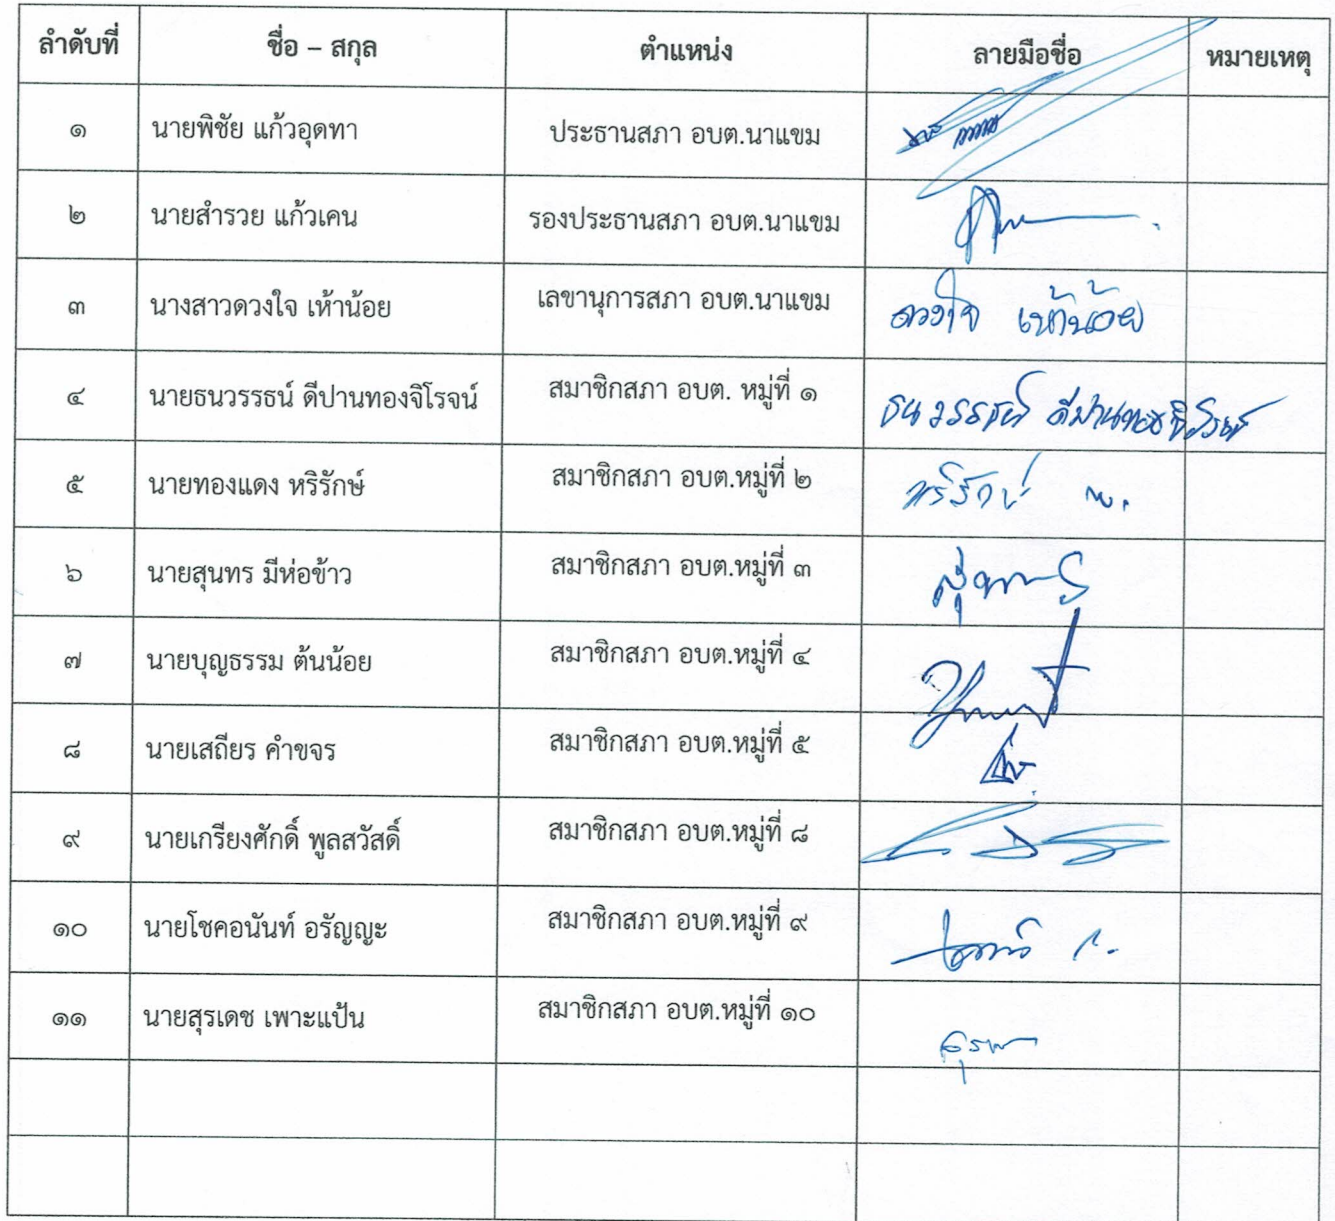 ลำดับที่ ชื่อ – สกุล ตำแหน่ง ลายมือชื่อ หมายเหตุ
๑ นายพิชัย แก้วอุดทา ประธานสภา อบต.นาแขม
๒ นายสำรวย แก้วเคน รองประธานสภา อบต.นาแขม
๓ นางสาวดวงใจ เห้าน้อย เลขานุการสภา อบต.นาแขม ดวงใจ เห้าน้อย
๔ นายธนวรรธน์ ดีปานทองจิโรจน์ สมาชิกสภา อบต. หมู่ที่ ๑ ธนวรรธน์ ดีปานทองจิโรจน์
๕ นายทองแดง หริรักษ์ สมาชิกสภา อบต.หมู่ที่ ๒ หริรักษ์
๖ นายสุนทร มีห่อข้าว สมาชิกสภา อบต.หมู่ที่ ๓
๗ นายบุญธรรม ต้นน้อย สมาชิกสภา อบต.หมู่ที่ ๔
๘ นายเสถียร คำขจร สมาชิกสภา อบต.หมู่ที่ ๕
๙ นายเกรียงศักดิ์ พูลสวัสดิ์ สมาชิกสภา อบต.หมู่ที่ ๘
๑๐ นายโชคอนันท์ อรัญญะ สมาชิกสภา อบต.หมู่ที่ ๙
๑๑ นายสุรเดช เพาะแป้น สมาชิกสภา อบต.หมู่ที่ ๑๐